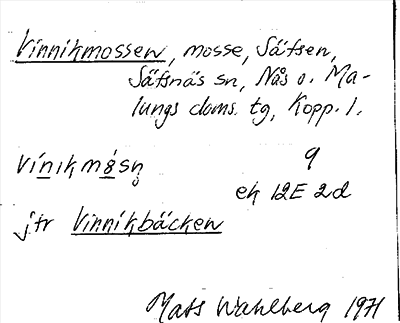 Vinnikmossen, mosse, Säfsen,
Säfsnäs sn, Nås o. Ma-
lungs doms. tg, Kopp. l.
vínıkmǿsn̥ 9
ek 12E 2d
jfr Vinnikbäcken
Mats Wahlberg 1971